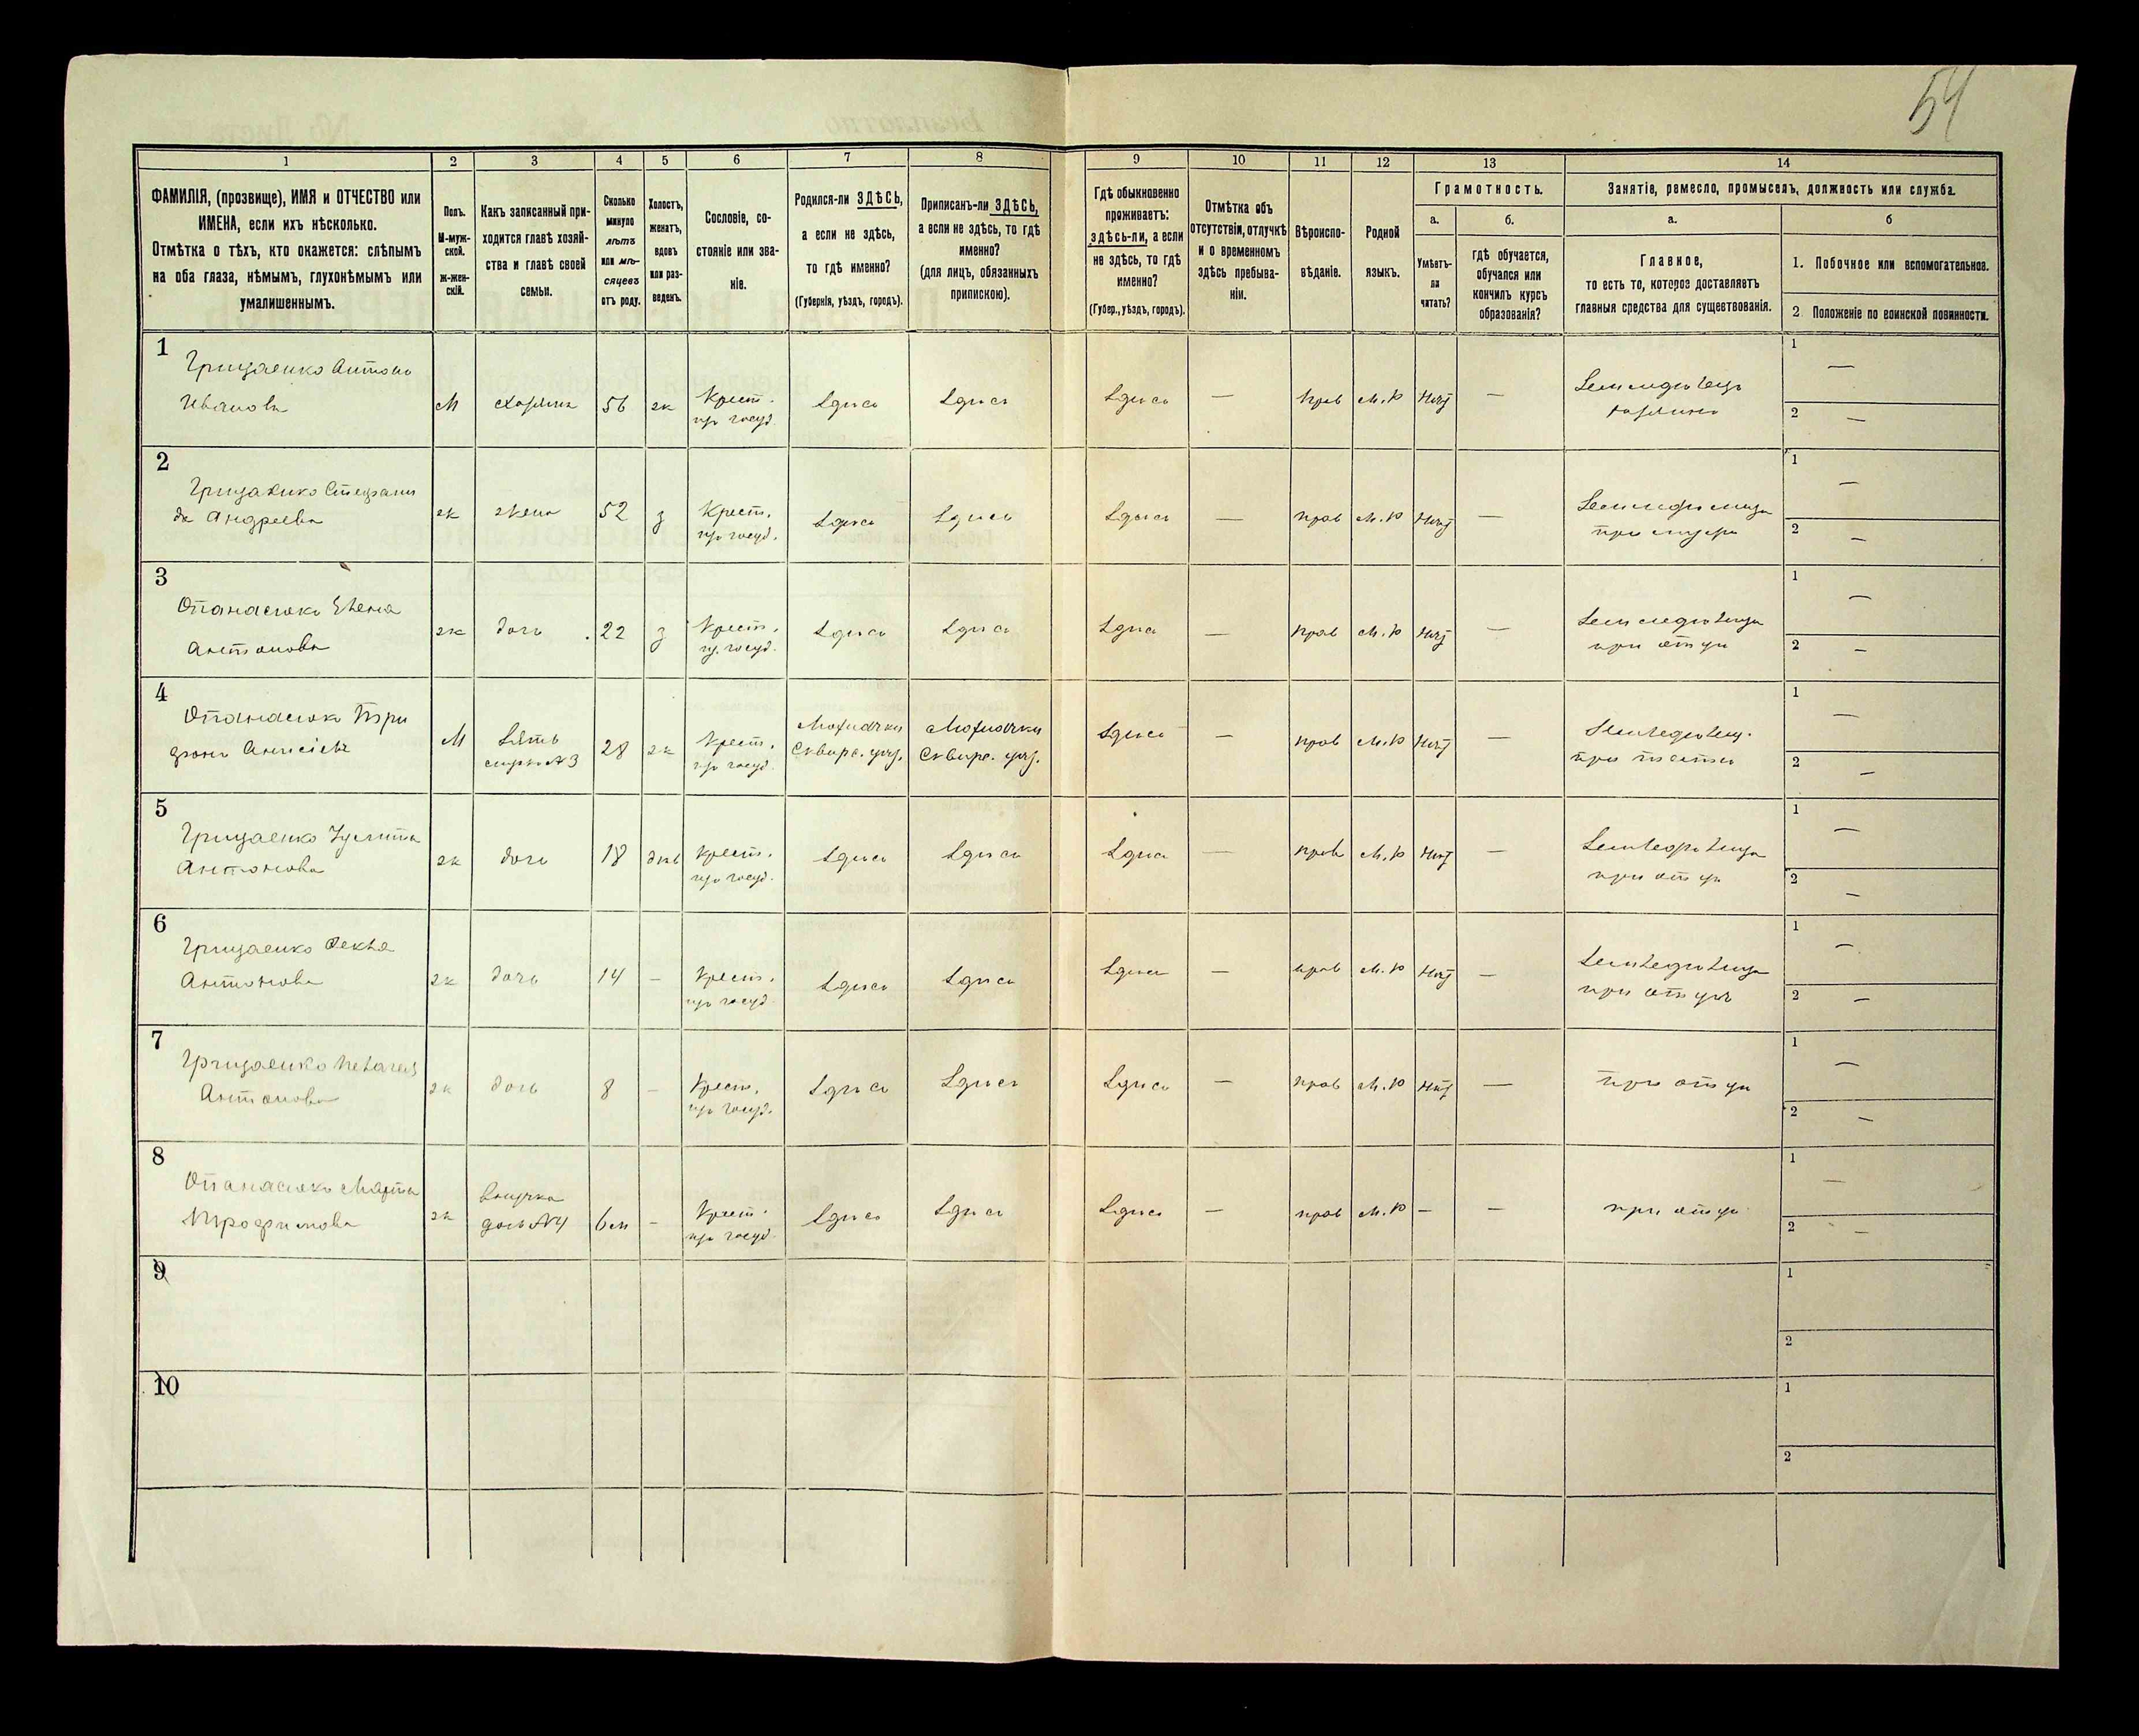 54
1 2 3 4 5 6 7 8 9 10 11 12 13 14
ФАМИЛІЯ, (прозвище), ИМЯ и ОТЧЕСТВО или
ИМЕНА, если ихъ нѣсколько.
Отмѣтка о тѣхъ, кто окажется: слѣпымъ
на оба глаза, нѣмымъ, глухонѣмымъ или
умалишеннымъ.
Полъ.
М-муж-
ской.
Ж-жен-
скій.
Какъ записанный при-
ходится главѣ хозяй-
ства и главѣ своей
семьи.
Сколько
минуло
лѣтъ
или мѣ-
сяцевъ
отъ роду.
Холостъ,
женатъ,
вдовъ
или раз-
веденъ.
Сословіе, со-
стояніе или зва-
ніе.
Родился-ли ЗДѢСЬ,
а если не здѣсь,
то гдѣ именно?
(Губернія, уѣздъ, городъ).
Приписанъ-ли ЗДѢСЬ,
а если не здѣсь, то гдѣ
именно?
(для лицъ, обязанныхъ
припискою).
Гдѣ обыкновенно
проживаетъ:
здѣсь-ли, а если
не здѣсь, то гдѣ
именно?
(Губер., уѣздъ, городъ).
Отмѣтка объ
отсутствіи, отлучкѣ
и о временномъ
здѣсь пребыва-
ніи.
Вѣроиспо-
вѣданіе.
Родной
языкъ.
Грамотность.
а. б.
Умѣетъ-
ли
читать?
гдѣ обучается,
обучался или
кончилъ курсъ
образованія?
Занятіе, ремесло, промыселъ, должность или служба.
а. б
Главное,
то есть то, которое доставляетъ
главныя средства для существованія.
1. Побочное или вспомогательное.
2. Положеніе по воинской повинности.
1
Грицаенко Антонъ
Ивановъ
М хозяинъ 56 ж Крест. Здись Здись Здись — прав М.р —
1 —
2 —
2
Грицаенко Степани
да Андреева
ж жена 52 з Крест. Здись Здись Здись — прав М.р —
1 —
2 —
3
Опанасюкъ Елена
Антонова
ж дочь 22 з Крест. Здись Здись Здись — прав М.р —
при отци
1 —
2 —
4
Опанасюкъ
М Зять 28 ж Крест. Здись — прав М.р —
Сквирс. Сквирс.
1 —
2 —
5
Грицаенко Улита
Антонова
ж дочь 18 Крест. Здись Здись Здись — прав М.р —
при отци
1 —
2 —
6
Грицаенко Фекла
Антонова
ж дочь 14 — Крест. Здись Здись Здись — прав М.р —
при отци
1 —
2 —
7
Грицаенко Пелагея
Антонова
ж дочь 8 — Крест. Здись Здись Здись — прав М.р —
при отци
1 —
2 —
8
Опанасюкъ Марта
Трофимова
ж внучка 6 м — Крест. Здись Здись Здись — прав М.р — —
дочь №4
при отци
1 —
2 —
9
1
2
10
1
2